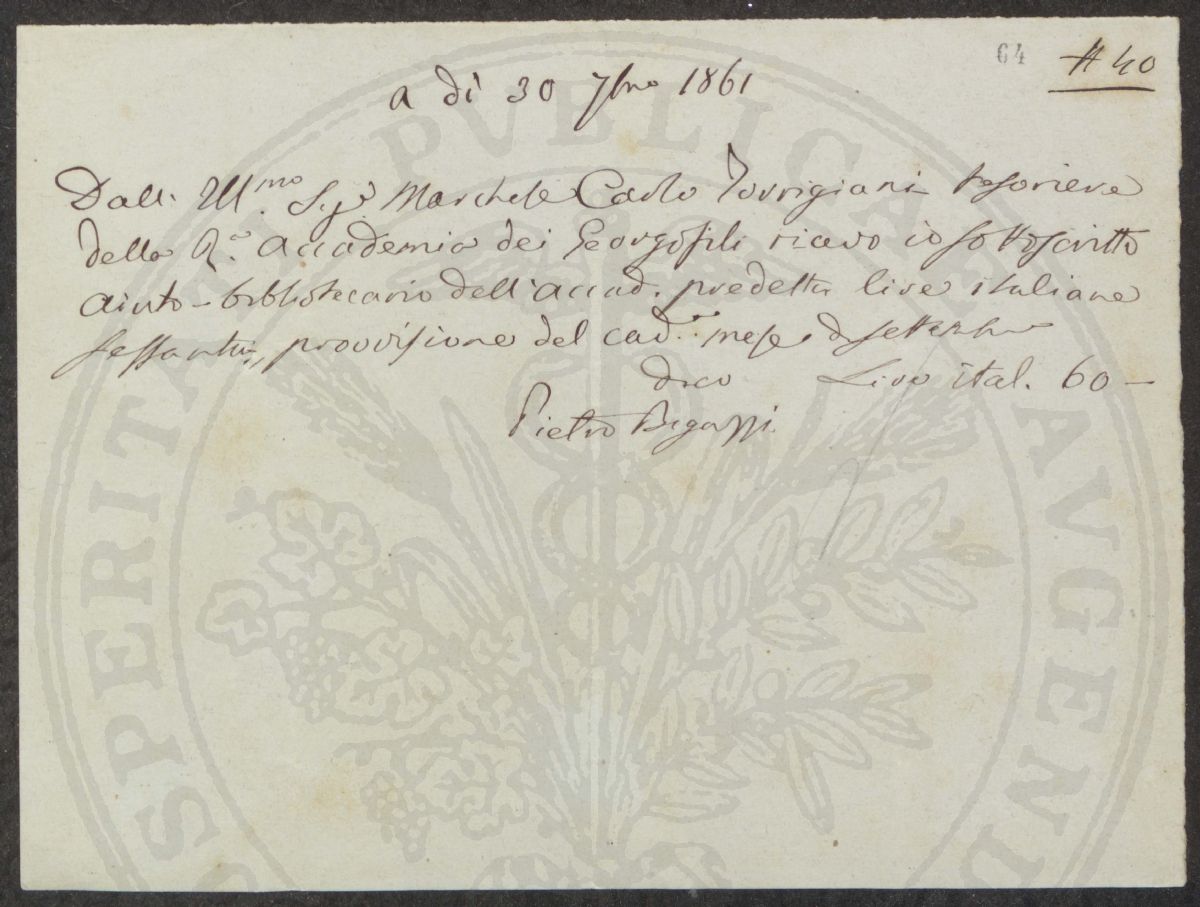 64 # 40
a dì 30 7bre 1861
Dall' Ill.mo Sig.r Marchese Carlo Torrigiani tesoriere
della R.e Accademia dei Georgofili ricevo io sottoscritto
aiuto-bibliotecario dell'accad. predetta lire italiane
sessanta, provvisione del cad.e mese di settembre
dico Lire ital. 60 —
Pietro Bigazzi
PROSPERITATI PVBLICAE AVGENDAE